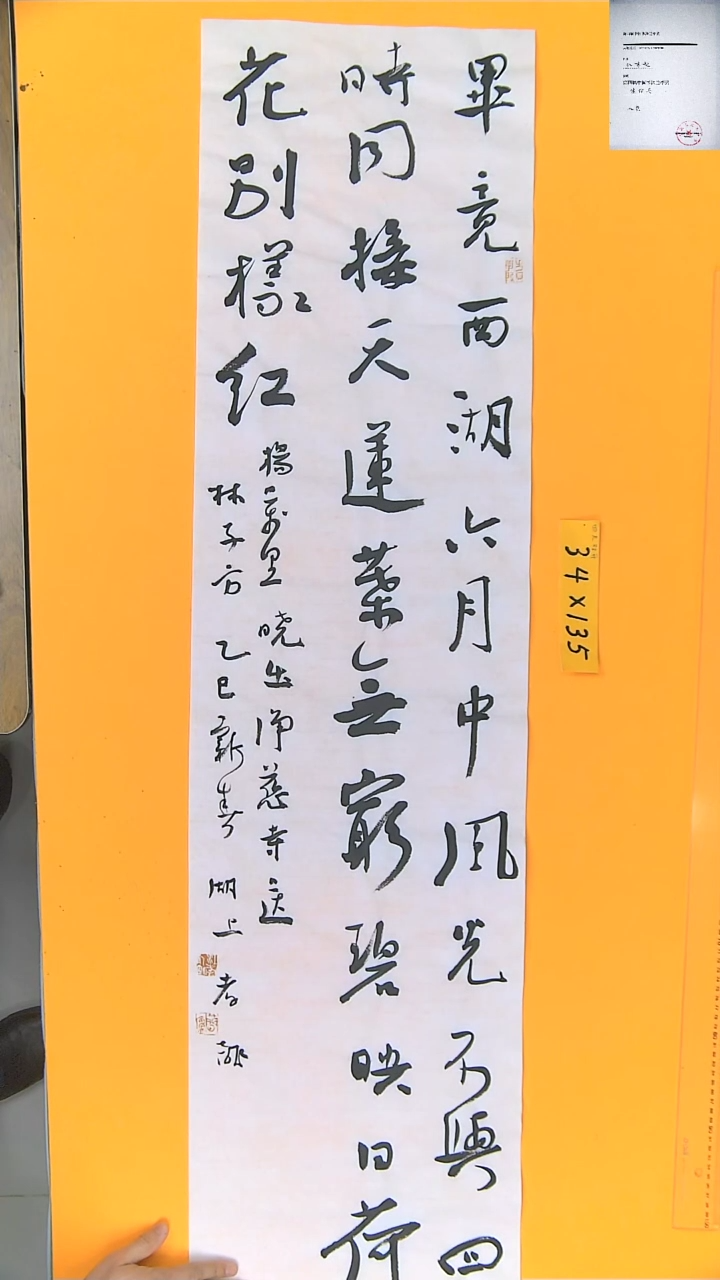 畢竟西湖六月中風光不與四
時同接天蓮葉無窮碧映日荷
花别樣紅
楊萬里 曉出淨慈寺送
林子方 乙巳新春 湖上
34×135